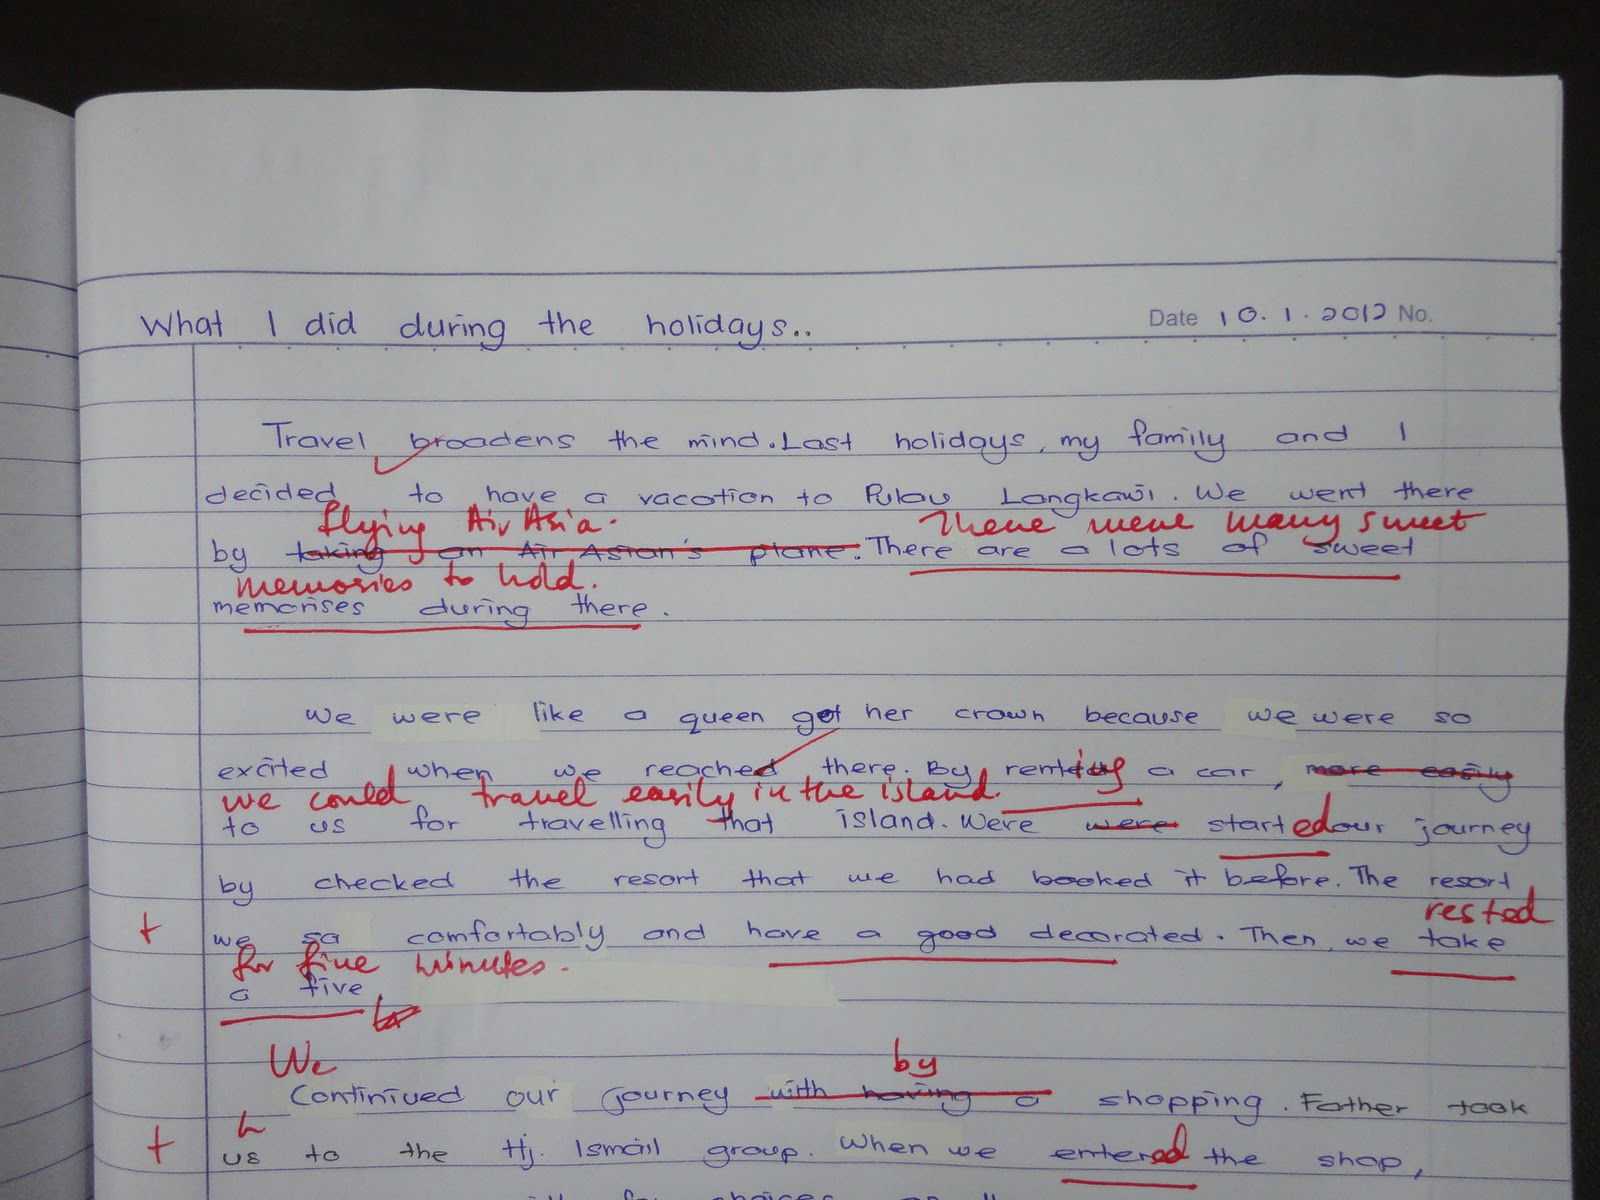 What I did during the holidays..
Date 10.1.2012 No.
Travel broadens the mind. Last holidays, my family and I
decided to have a vacation to Pulau Langkawi. We went there
flying Air Asia. There were many sweet
by taking an Air Asian's plane. There are a lots of sweet
memories to hold.
memorises during there.
We were like a queen get her crown because we were so
excited when we reached there. By renting a car, more easily
we could travel easily in the island.
to us for travelling that island. Were were started our journey
by checked the resort that we had booked it before. The resort
rested
t we so comfortably and have a good decorated. Then, we take
for five minutes.
a five
We by
Continiued our journey with having a shopping. Father took
t us to the Hj. Ismail group. When we entered the shop,
for choices